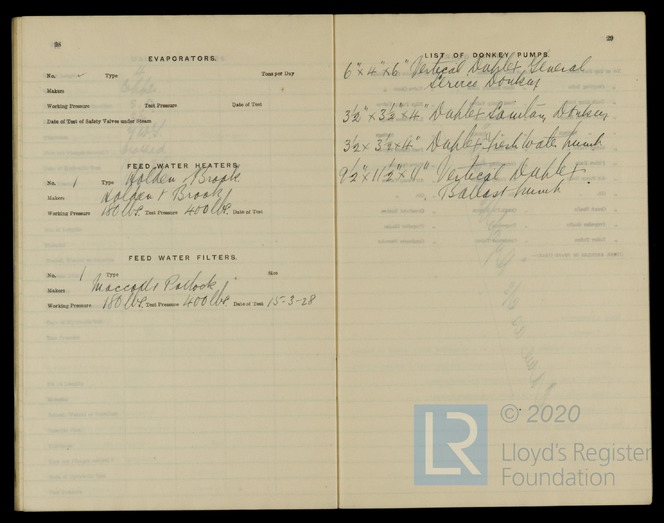 28
EVAPORATORS.
No. Type Tons per Day
Makers
Working Pressure Test Pressure Date of Test
Date of Test of Safety Valves under Steam
FEED WATER HEATERS.
No. 1 Type Holden & Brook
Makers Holden & Brook
Working Pressure 180 lbs. Test Pressure 400 lbs. Date of Test
FEED WATER FILTERS.
No. 1 Type Size
Makers Pollock
Working Pressure 180 lbs. Test Pressure 400 lbs. Date of Test 15-3-28
29
LIST OF DONKEY PUMPS.
6" x 4" x 6" Vertical Duplex General
Service Donkey
3½" x 3½" x 4" Duplex Sanitary Donkey
3½ x 3½ x 4" Duplex Fresh Water pump
9½" x 11½" x 11" Vertical Duplex
Ballast pump.
LR
© 2020
Lloyd's Register
Foundation